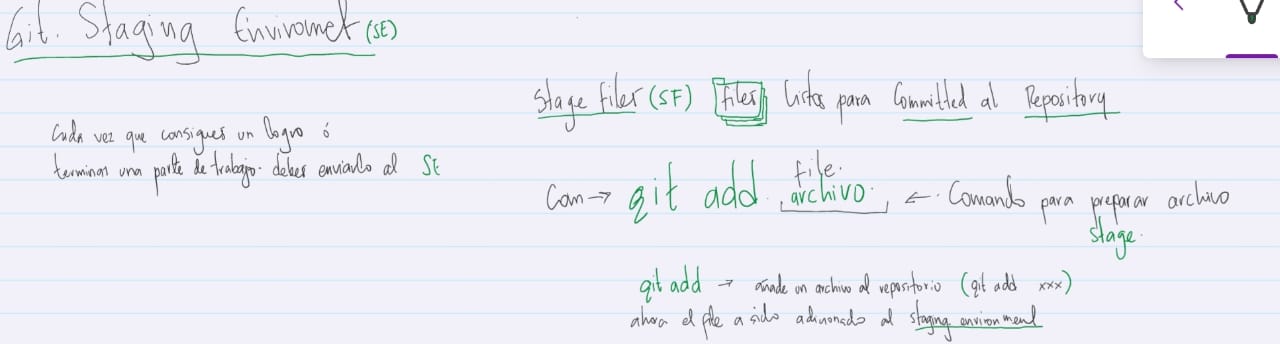 Git. Staging Enviromet (SE)
Cada vez que consigues un logro ó
terminas una parte de trabajo. debes enviarlo al SE
Stage files (SF) files listos para Committed al Repository
Con → git add file. archivo. ← Comando para preparar archivo
stage.
git add → añade un archivo al repositorio (git add xxx)
ahora el file a sido adicionado al staging environment